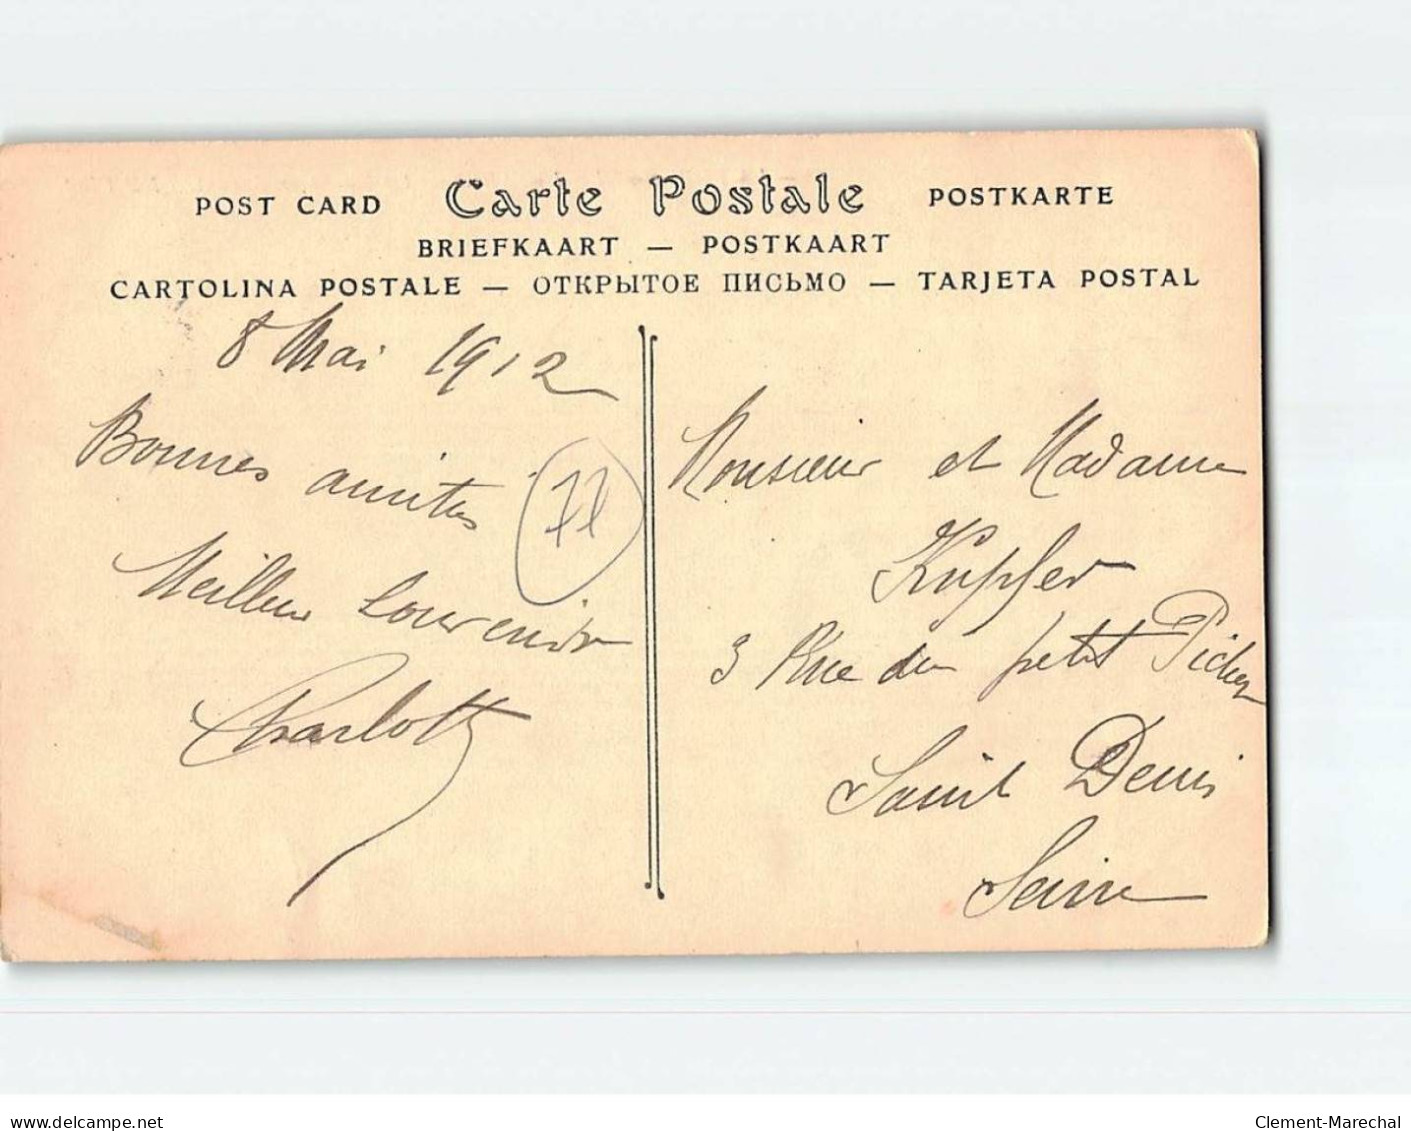 POST CARD Carte Postale POSTKARTE
BRIEFKAART — POSTKAART
CARTOLINA POSTALE — ОТКРЫТОЕ ПИСЬМО — TARJETA POSTAL
8 Mai 1912
Bonnes amitiés
Meilleur Souvenir
Charlotte
77
Monsieur et Madame
Kupfer
3 Rue du petit
Saint Denis
Seine
www.delcampe.net
Clement-Marechal